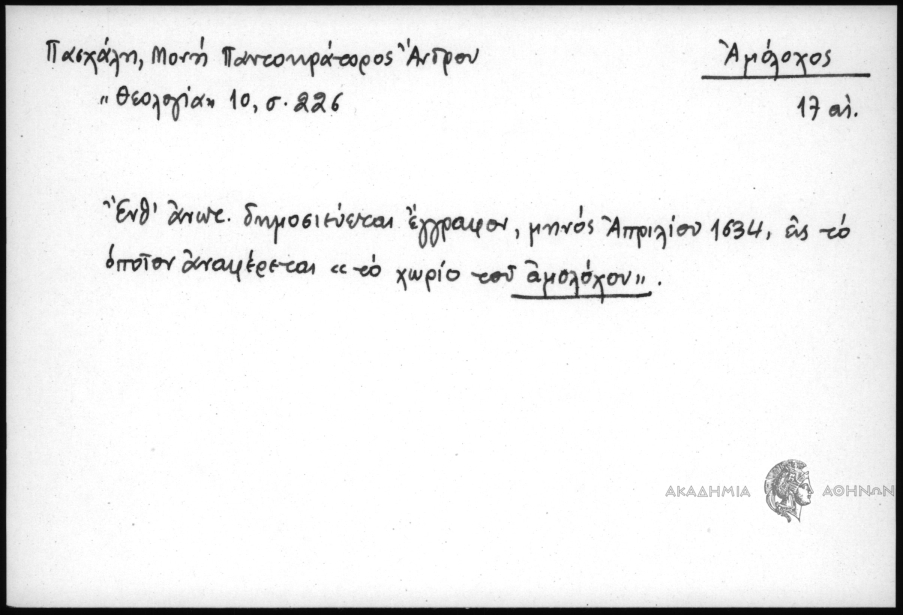 Πασχάλη, Μονή Παντοκράτορος Ἄνδρου
"Θεολογία" 10, σ. 226
Ἀμόλοχος
17 αἰ.
Ἔνθ' ἀνωτ. δημοσιεύεται ἔγγραφον, μηνός Ἀπριλίου 1634, εἰς τό
ὁποῖον ἀναφέρεται «τό χωρίο τοῦ ἀμολόχου».
ΑΚΑΔΗΜΙΑ ΑΘΗΝΩΝ